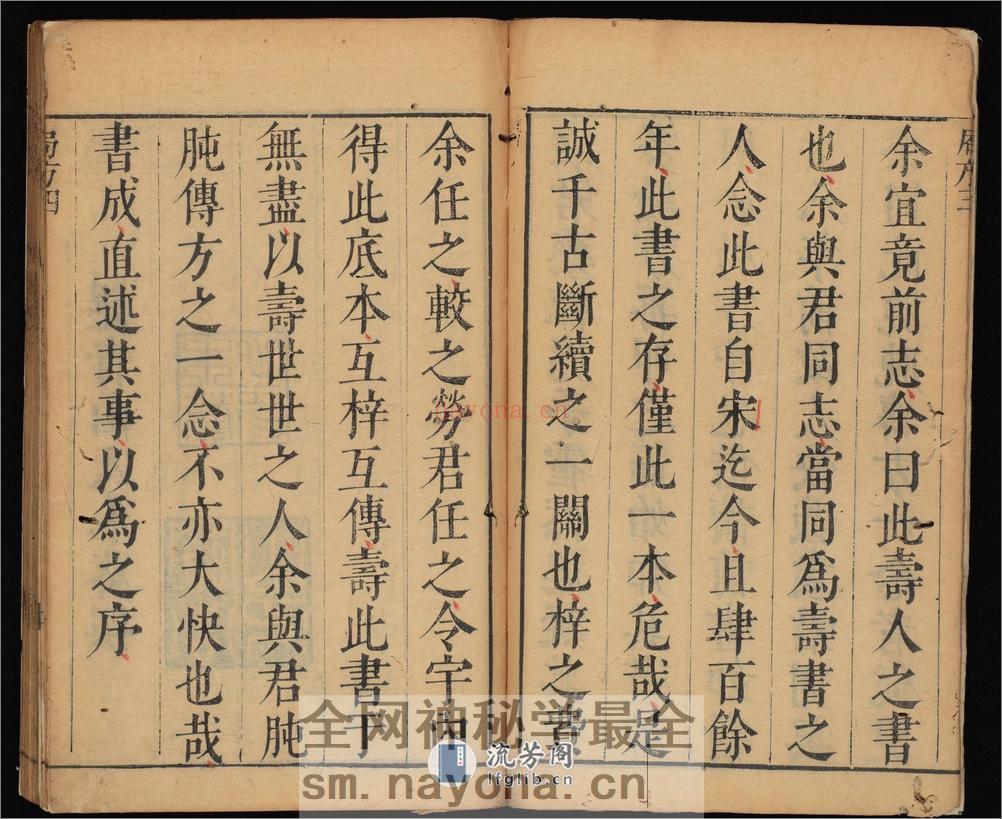 局方三
余宜竟前志余曰此壽人之書
也余與君同志當同爲壽書之
人念此書自宋迄今且肆百餘
年此書之存僅此一本危哉足
誠千古斷續之一關也梓之費
余任之較之勞君任之令宇內
得此底本互梓互傳壽此書于
無盡以壽世世之人余與君肫
肫傳方之一念不亦大快也哉
書成直述其事以爲之序
局方四
nayona.cn
全网神秘学最全
流芳阁
lfglib.cn
sm.nayona.cn